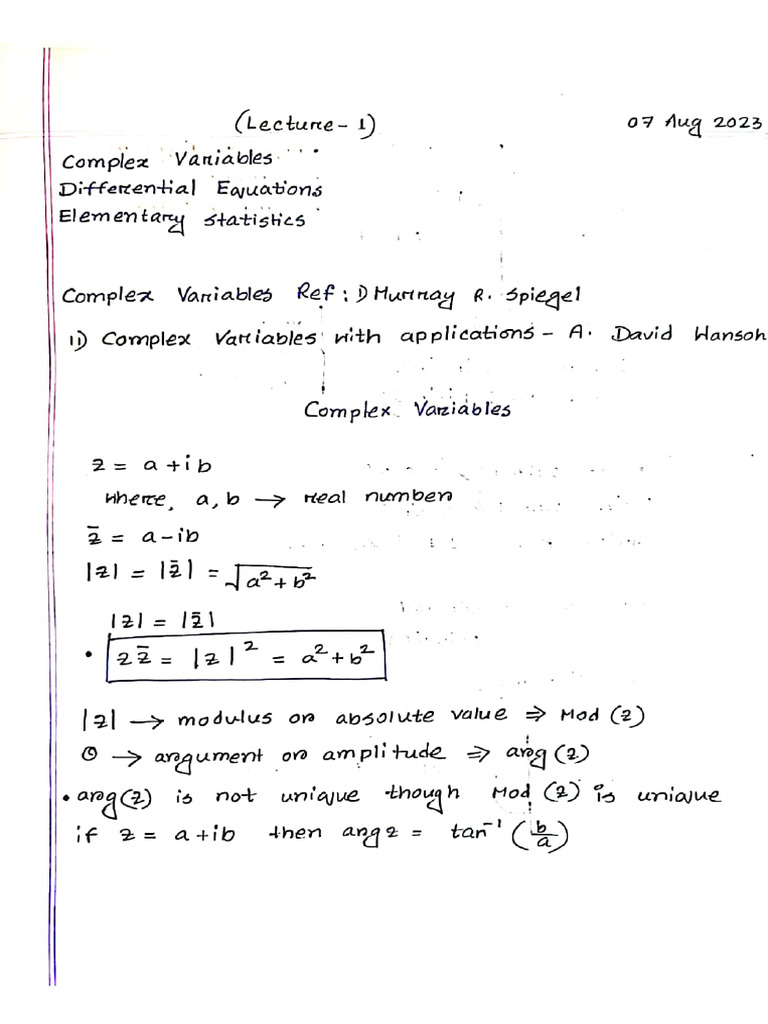 (Lecture - 1)
07 Aug 2023
Complex Variables
Differential Equations
Elementary statistics
Complex Variables Ref: i) Murray R. Spiegel
ii) Complex Variables with applications - A. David Wansoh
Complex Variables
z = a + ib
where, a, b → real number
z̄ = a - ib
|z| = |z̄| = √(a² + b²)
|z| = |z̄|
• z z̄ = |z|² = a² + b²
|z| → modulus or absolute value ⇒ Mod (z)
Θ → argument or amplitude ⇒ arg (z)
• arg(z) is not unique though Mod (z) is unique
if z = a + ib then arg z = tan⁻¹ (b/a)